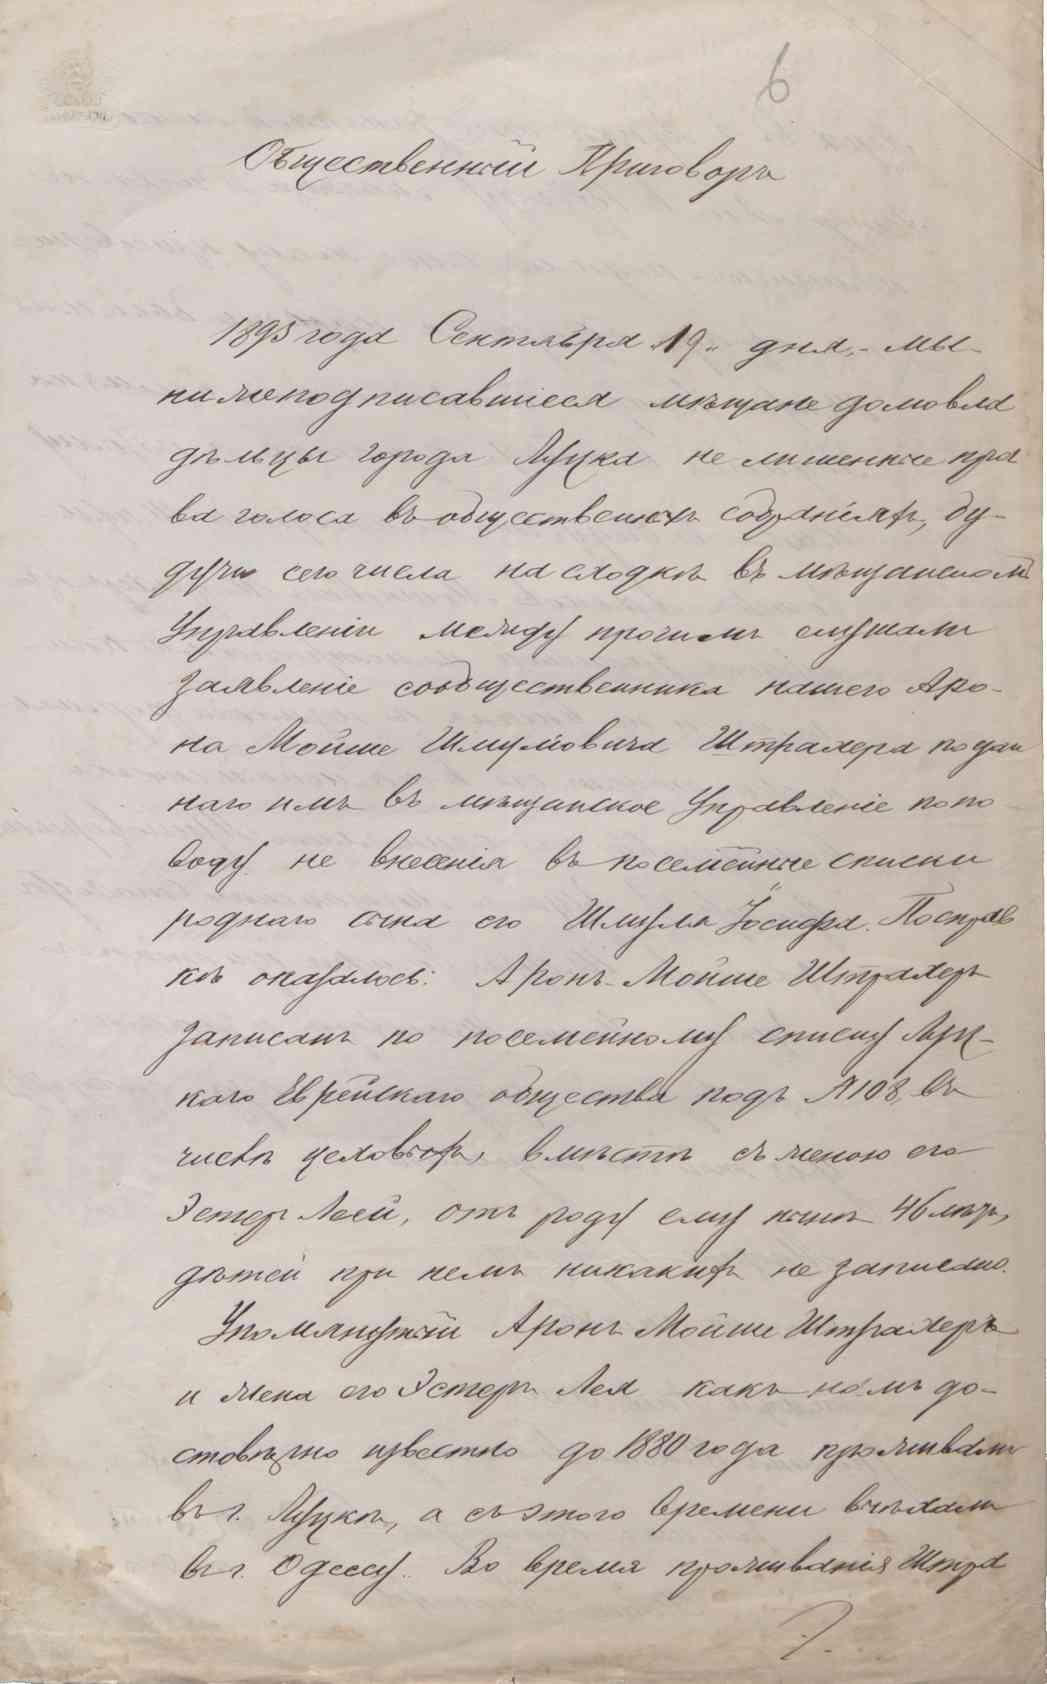 6
Общественный Приговоръ
1895 года Сентября 19" дня, - мы
нижеподписавшіеся мѣщане домовла
дѣльцы города Луцка не лишенные пра
ва голоса въ общественныхъ собраніяхъ, бу-
дучи сего числа на сходкѣ въ мѣщанском
Управленіи между прочимъ слушали
заявленіе сообщественника нашего Аро-
на Мойше Шмулiовича Штрахера подан
наго имъ въ мѣщанское Управленіе по по
воду не внесенія въ посемейные списки
роднаго сына его Шмуля Іосифа. По справ
кѣ оказалось: Аронъ-Мойше Штрахеръ
записанъ по посемейному списку Луц-
каго Еврейскаго общества подъ №108, въ
числѣ цеховыхъ, вмѣстѣ съ женою его
Эстер Леей, отъ роду ему нынѣ 46 лѣтъ,
дѣтей при немъ никакихъ не записано.
Упомянутый Аронъ Мойше Штрахеръ
и жена его Эстеръ Лея какъ намъ до-
стовѣрно извѣстно до 1880 года проживали
въ г. Луцкѣ, а съ этого времени выѣхали
въ г. Одессу. Во время проживанія Штра